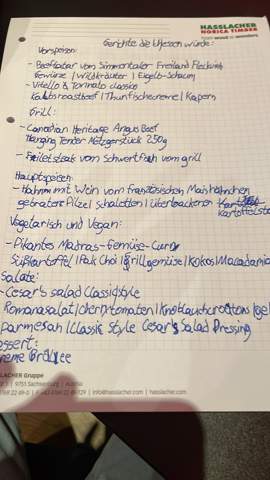 HASSLACHER
NORICA TIMBER
From wood to wonders
Gerichte die ich essen würde:
Vorspeisen:
- Beeftatar vom Simmentaler Freiland Fleckvieh
Gewürze | Wildkräuter | Eigelb-Schaum
- Vitello & Tonnato classico
Kalbsroastbeef | Thunfischcreme | Kapern
Grill:
- Canadian Heritage Angus Beef
Hanging Tender Metzgerstück 250g
- Filetsteak vom Schwertfisch vom grill
Hauptspeisen:
- Hahn mit Wein vom französischen Maishähnchen
gebratene Pilze | schaletten | überbackener
Kartoffelst
Vegetarisch und Vegan:
- Pikantes Madras-Gemüse-Curry
Süßkartoffel | Pak Choi | Grillgemüse | Kokos | Macadamia
Salate:
- Cesar's salad Classicstyle
Romanasalat | cherrytomaten | Knoblauchcroutons | gel
parmesan | Classic Style Cesar's Salad Dressing
ssert:
reme Brûlee
SLACHER Gruppe
9751 Sachsenburg | Austria
info@hasslacher.com | hasslacher.com